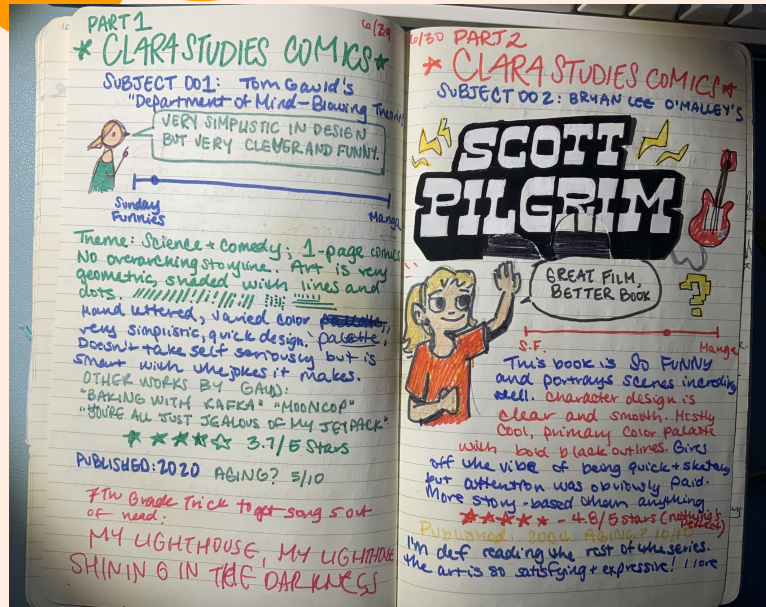 PART 1
6/29
* CLARA STUDIES COMICS *
SUBJECT 001: Tom Gauld's
"Department of Mind-Blowing Theories
VERY SIMPLISTIC IN DESIGN
BUT VERY CLEVER AND FUNNY.
Sunday
Funnies
Manga
Theme: Science + Comedy; 1-page comics
No overarching storyline. Art is very
geometric, shaded with lines and
dots.
Hand lettered, varied color
very simplistic, quick design. palette,
Doesn't take self seriously but is
smart with the jokes it makes.
OTHER WORKS BY GAULD:
"BAKING WITH KAFKA" "MOONCOP"
"YOU'RE ALL JUST JEALOUS OF MY JETPACK"
3.7/5 Stars
PUBLISHED: 2020 AGING? 5/10
7th Grade Trick to get song s out
of head:
MY LIGHTHOUSE, MY LIGHTHOUSE
SHINING IN THE DARKNESS
6/30 PART 2
* CLARA STUDIES COMICS *
SUBJECT 002: BRYAN LEE O'MALLEY'S
SCOTT
PILGRIM
GREAT FILM,
BETTER BOOK
?
S.F.
Manga
This book is SO FUNNY
and portrays scenes incredibly
well. Character design is
clear and smooth. Mostly
cool, primary color palate
with bold black outlines. Gives
off the vibe of being quick + sketchy
but attention was obviously paid.
More story-based than anything
- 4.8/5 stars (nothing's
perfect)
Published: 2004 AGING? 10/10
I'm def reading the rest of the series.
the art is so satisfying + expressive!